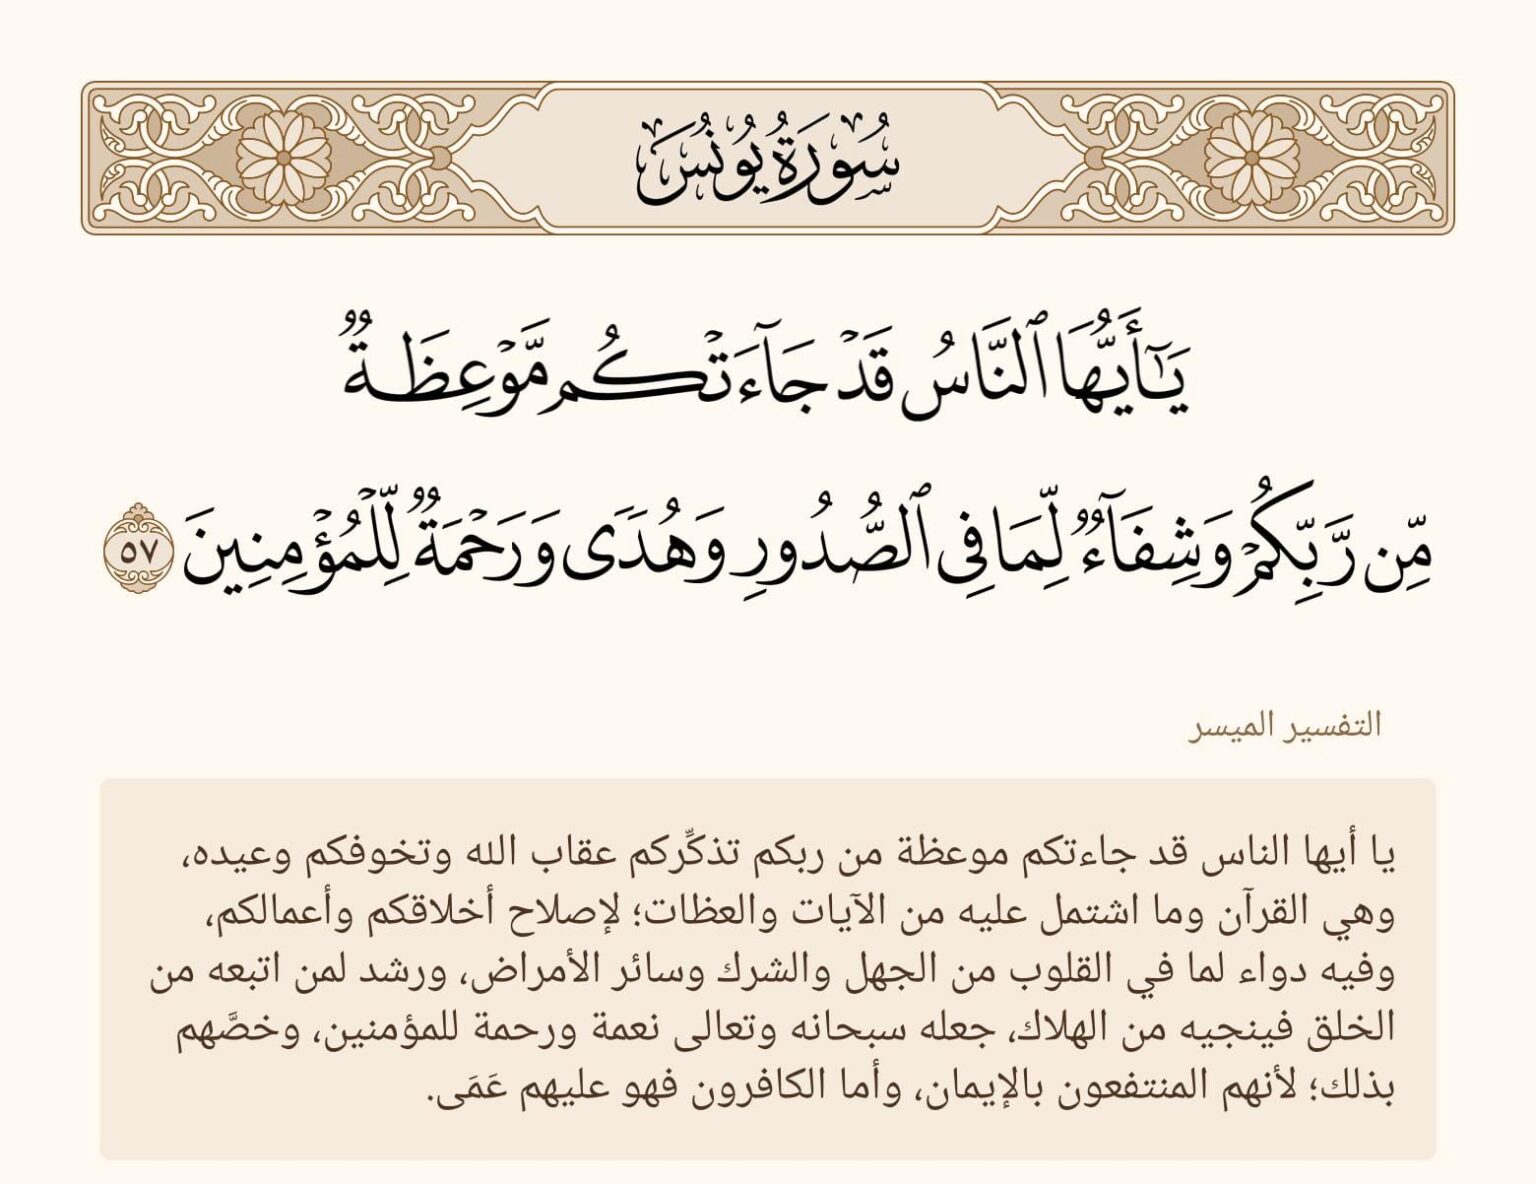 سُورَةُ يُونُسَ
يَـٰٓأَيُّهَا ٱلنَّاسُ قَدْ جَآءَتْكُم مَّوْعِظَةٌ
مِّن رَّبِّكُمْ وَشِفَآءٌ لِّمَا فِى ٱلصُّدُورِ وَهُدًى وَرَحْمَةٌ لِّلْمُؤْمِنِينَ ٥٧
التفسير الميسر
يا أيها الناس قد جاءتكم موعظة من ربكم تذكِّركم عقاب الله وتخوفكم وعيده،
وهي القرآن وما اشتمل عليه من الآيات والعظات؛ لإصلاح أخلاقكم وأعمالكم،
وفيه دواء لما في القلوب من الجهل والشرك وسائر الأمراض، ورشد لمن اتبعه من
الخلق فينجيه من الهلاك، جعله سبحانه وتعالى نعمة ورحمة للمؤمنين، وخصَّهم
بذلك؛ لأنهم المنتفعون بالإيمان، وأما الكافرون فهو عليهم عَمَى.